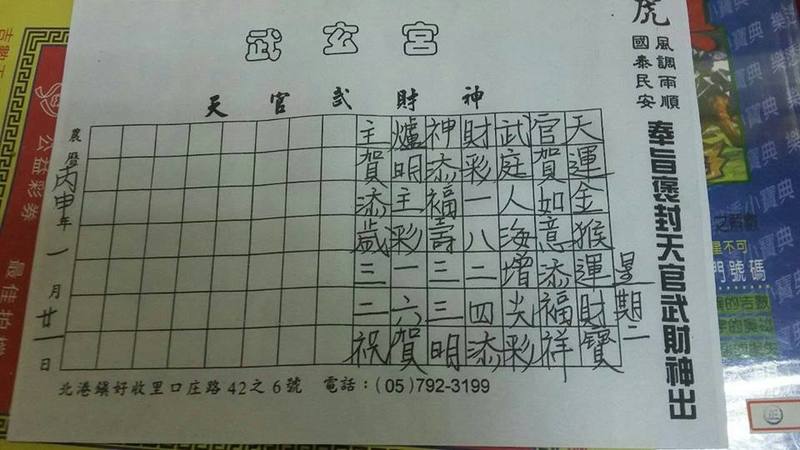 武玄宮
天官武財神
虎
風調雨順
國泰民安
奉旨褒封天官武財神出
星期二
天運金猴運財寶
官賀如意添福祥
武庭人海增光彩
財彩一八二四添
神添福壽三三明
爐明主彩一六賀
主賀添歲三二祝
農曆丙申年一月廿一日
北港鎮好收里口庄路42之6號 電話:(05)792-3199
公益彩券
最佳拍
小寶典
門號碼